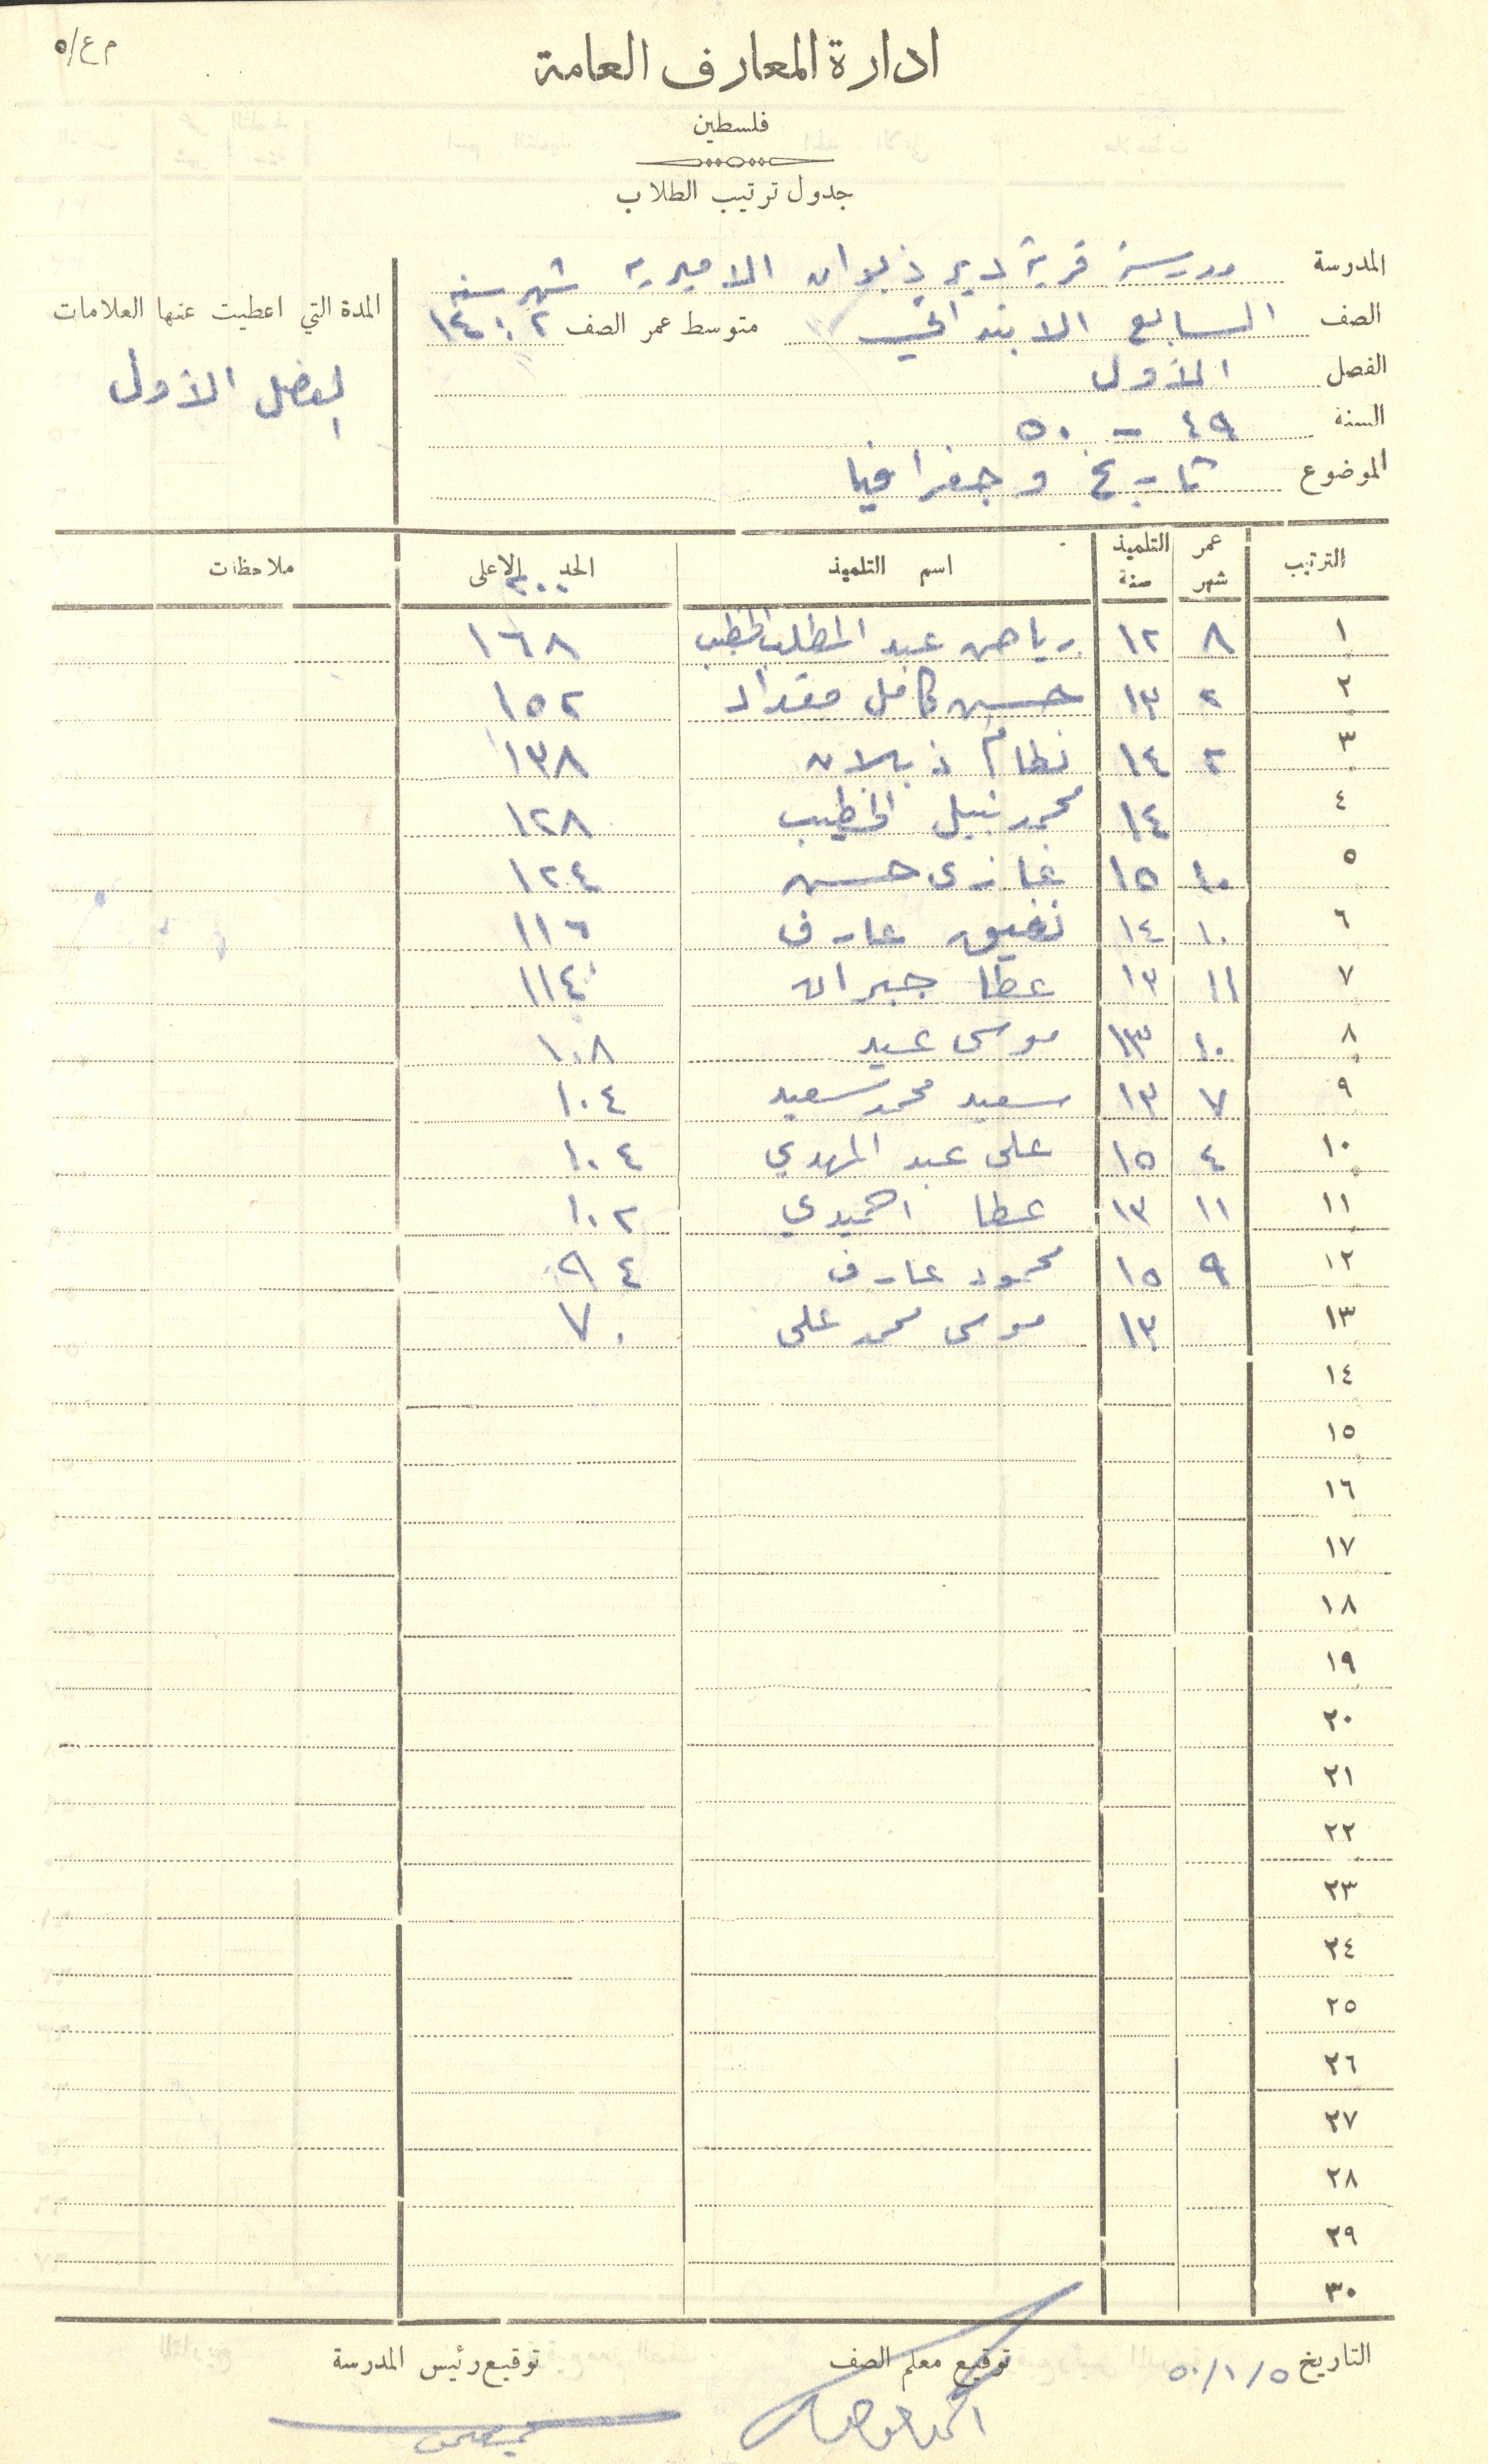 م ع/٥
ادارة المعارف العامة
فلسطين
جدول ترتيب الطلاب
المدرسة مدرسة قرية دير ذبوان الاميرية شهر سنة
الصف السابع الابتدائي متوسط عمر الصف ٢ : ١٤
الفصل الأول
السنة ٤٩ - ٥٠
الموضوع تاريخ وجغرافيا
المدة التي اعطيت عنها العلامات
الفصل الأول
الترتيب عمر التلميذ شهر سنة اسم التلميذ الحد الاعلى ٢٠٠ ملاحظات
١ ٨ ١٢ رياض عبد المطلب الخطيب ١٦٨
٢ ٢ ١٣ حسين كامل مقداد ١٥٢
٣ ٢ ١٤ نظام ذبلان ١٣٨
٤ ١٤ محمد نبيل الخطيب ١٢٨
٥ ١٠ ١٥ غازى حسن ١٢٤
٦ ١٠ ١٤ عارف ١١٦
٧ ١١ ١٣ عطا جبران ١١٤
٨ ١٠ ١٣ موسى عيد ١٠٨
٩ ٧ ١٣ سعيد محمد سعيد ١٠٤
١٠ ٤ ١٥ على عبد المهدي ١٠٤
١١ ١١ ١٣ عطا الحميدي ١٠٢
١٢ ٩ ١٥ محمود عارف ٩٤
١٣ ١٣ موسى محمد على ٧٠
١٤
١٥
١٦
١٧
١٨
١٩
٢٠
٢١
٢٢
٢٣
٢٤
٢٥
٢٦
٢٧
٢٨
٢٩
٣٠
التاريخ ٥/١/٥٠ توقيع معلم الصف توقيع رئيس المدرسة